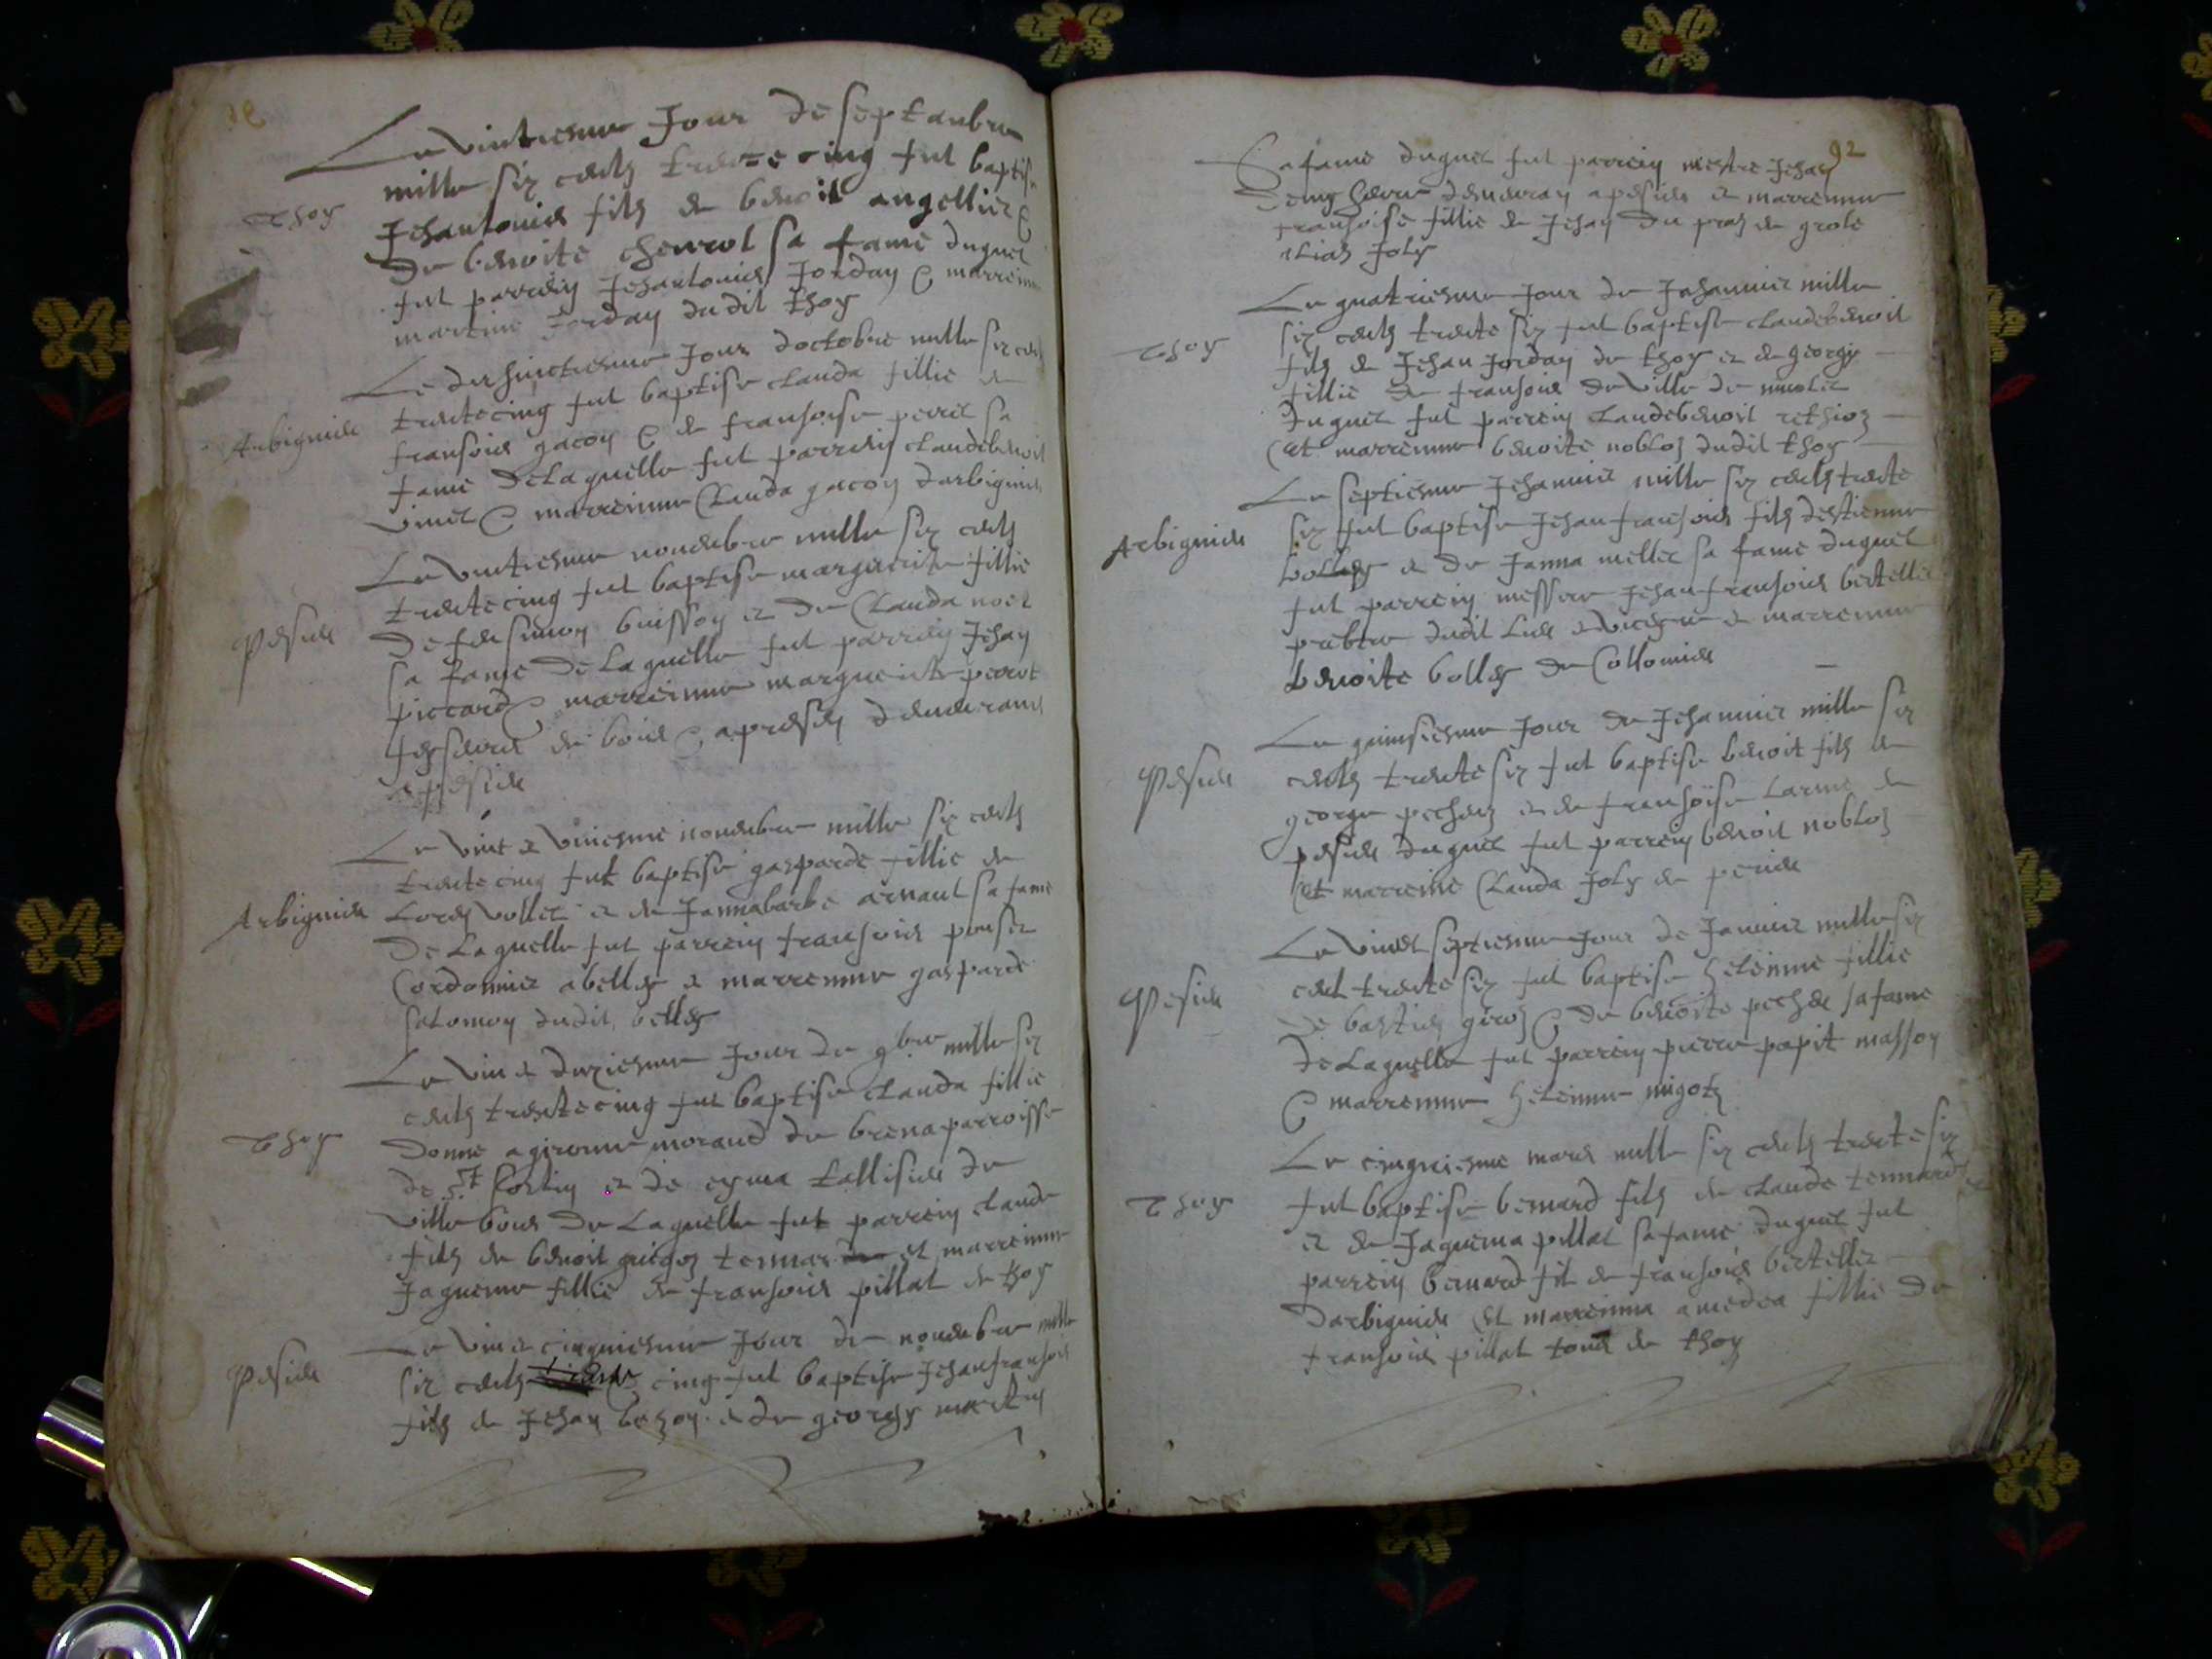 Le vintiesme Jour de septanbre
mille six cents trente cinq fut baptise
Thoy
Jehantonies fils de benoit angellier &
de benoite chenrol sa fame duquel
fut parrein Jehantonies Jorday & marreine
martine Jorday dudit thoy
Le dix huictiesme Jour doctobre mille six cents
trente cinq fut baptise clauda fillie de
Arbignieu
fransois gacon & de fransoise perret sa
fame de laquelle fut parrein claudebenoit
vinet & marreinne Clauda gacon darbignieu
Le vintiesme novembre mille six cents
trente cinq fut baptise marguerite fillie
Pesieu
de simon buisson et de Clauda noel
sa fame de laquelle fut parrein Jehan
piccard & marreinne marguerite perrot
de & a presen demeurans
a pesieu
Le vint et uniesme novembre mille six cents
trente cinq fut baptise gasparde fillie de
Arbignieu
vollet et de Jannabarbe arnaut sa fame
de laquelle fut parrein fransois ponset
Cordonnier a belley et marrenne gasparde
salomon dudit belley
Le vint et duxiesme Jour de 9bre mille six
cents trente cinq fut baptise clauda fillie
Thoy
donne a morand de brena parroisse
de St et de eyma de
ville bois de laquelle fut parrein claude
fils de benoit tennard et marreinne
Jaqueme fillie de fransois pillat de thoy
Le vint cinquiesme Jour de novembre mille
Pesieu
six cents trente cinq fut baptise Jehanfransois
fils de Jehan bozon et de georgy martin
92
Sa fame duquel fut parrein mestre Jehan
demeuran a pesieu et marrenne
fransoise fillie de Jehan du praz de grole
alias Joly
Le quatriesme Jour de Jehanvier mille
Thoy
six cents trente six fut baptise claudebenoit
fils de Jehan Jorday de thoy et de georgy
fillie de fransois deville de
duquel fut parrein claudebenoit
et marrenne benoite nobloz dudit thoy
Le septiesme Jehanvier mille six cents trente
Arbignieu
six fut baptise Jehanfransois fils destienne
bolley et de Janna mellet sa fame duquel
fut parrein messire Jehanfransois bertellier
prebtre dudit lieu et vicayre et marrenne
benoite bolley de Collomieu
Le quinsiesme Jour de Jehanvier mille six
Pesieu
cents trente six fut baptise benoit fils de
george pechoz et de fransoise larme de
pesieu duquel fut parrein benoit nobloz
et marreine Clauda Joly de
Le vint septiesme Jour de Janvier mille six
Pesieu
cent trente six fut baptise helenne fillie
de bastien & de benoite pechoz sa fame
de laquelle fut parrein pierre papit masson
& marrenne heleinne migotz
Le cinquiesme mars mille six cents trente six
Thoy
fut baptise bernard fils de claude tennard
et de Jaquema pillat sa fame duquel fut
parrein bernard fil de fransois bertellier
darbignieu et marreinna amedea fillie de
fransois pillat tous de thoy